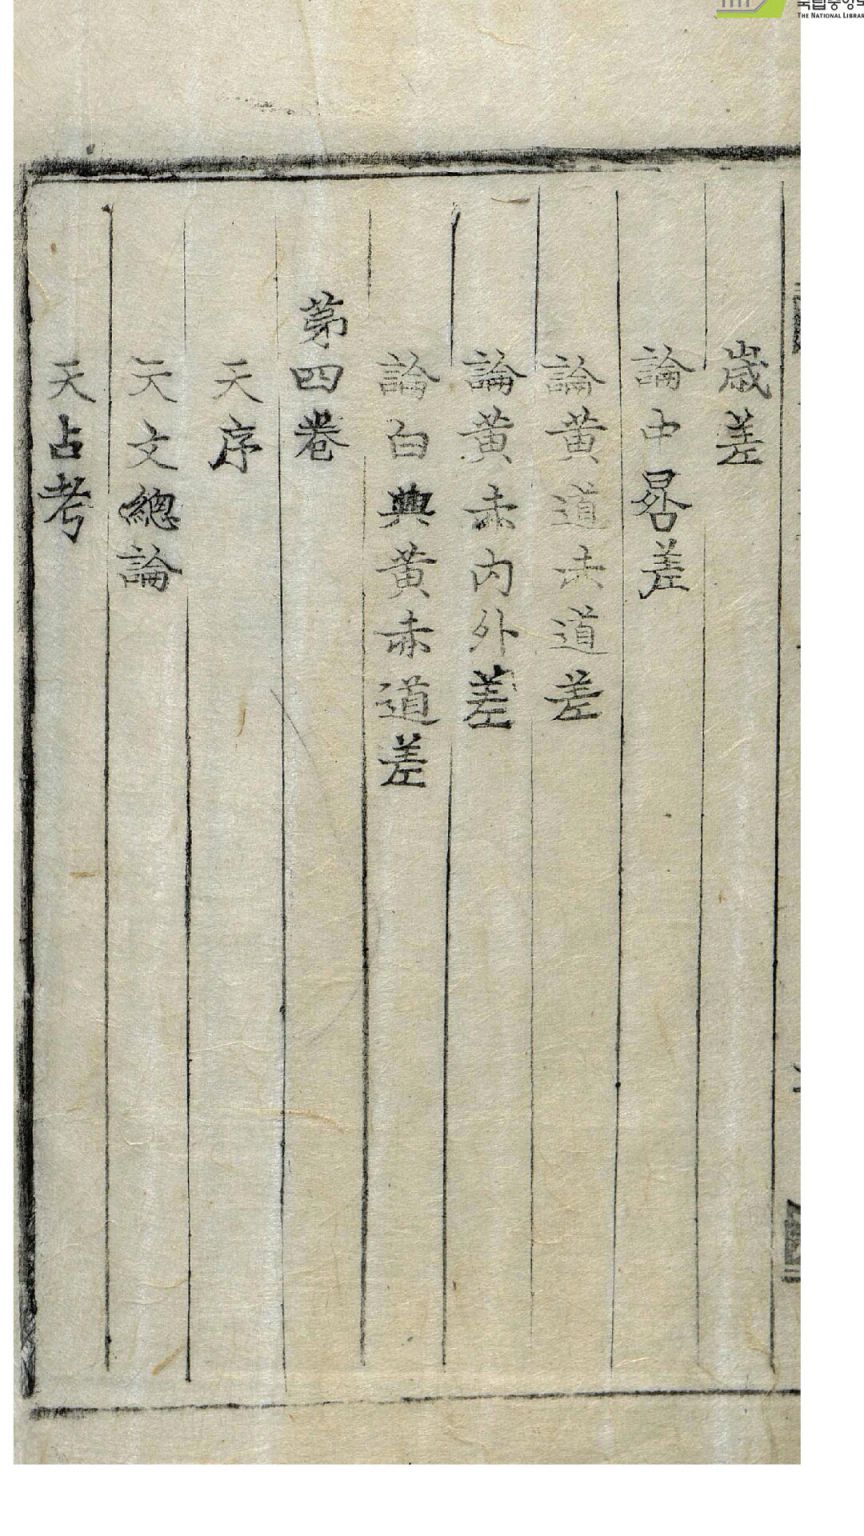 歲差
論中晷差
論黃道赤道差
論黃赤內外差
論白與黃赤道差
第四卷
天序
天文總論
天占考
THE NATIONAL LIBRA